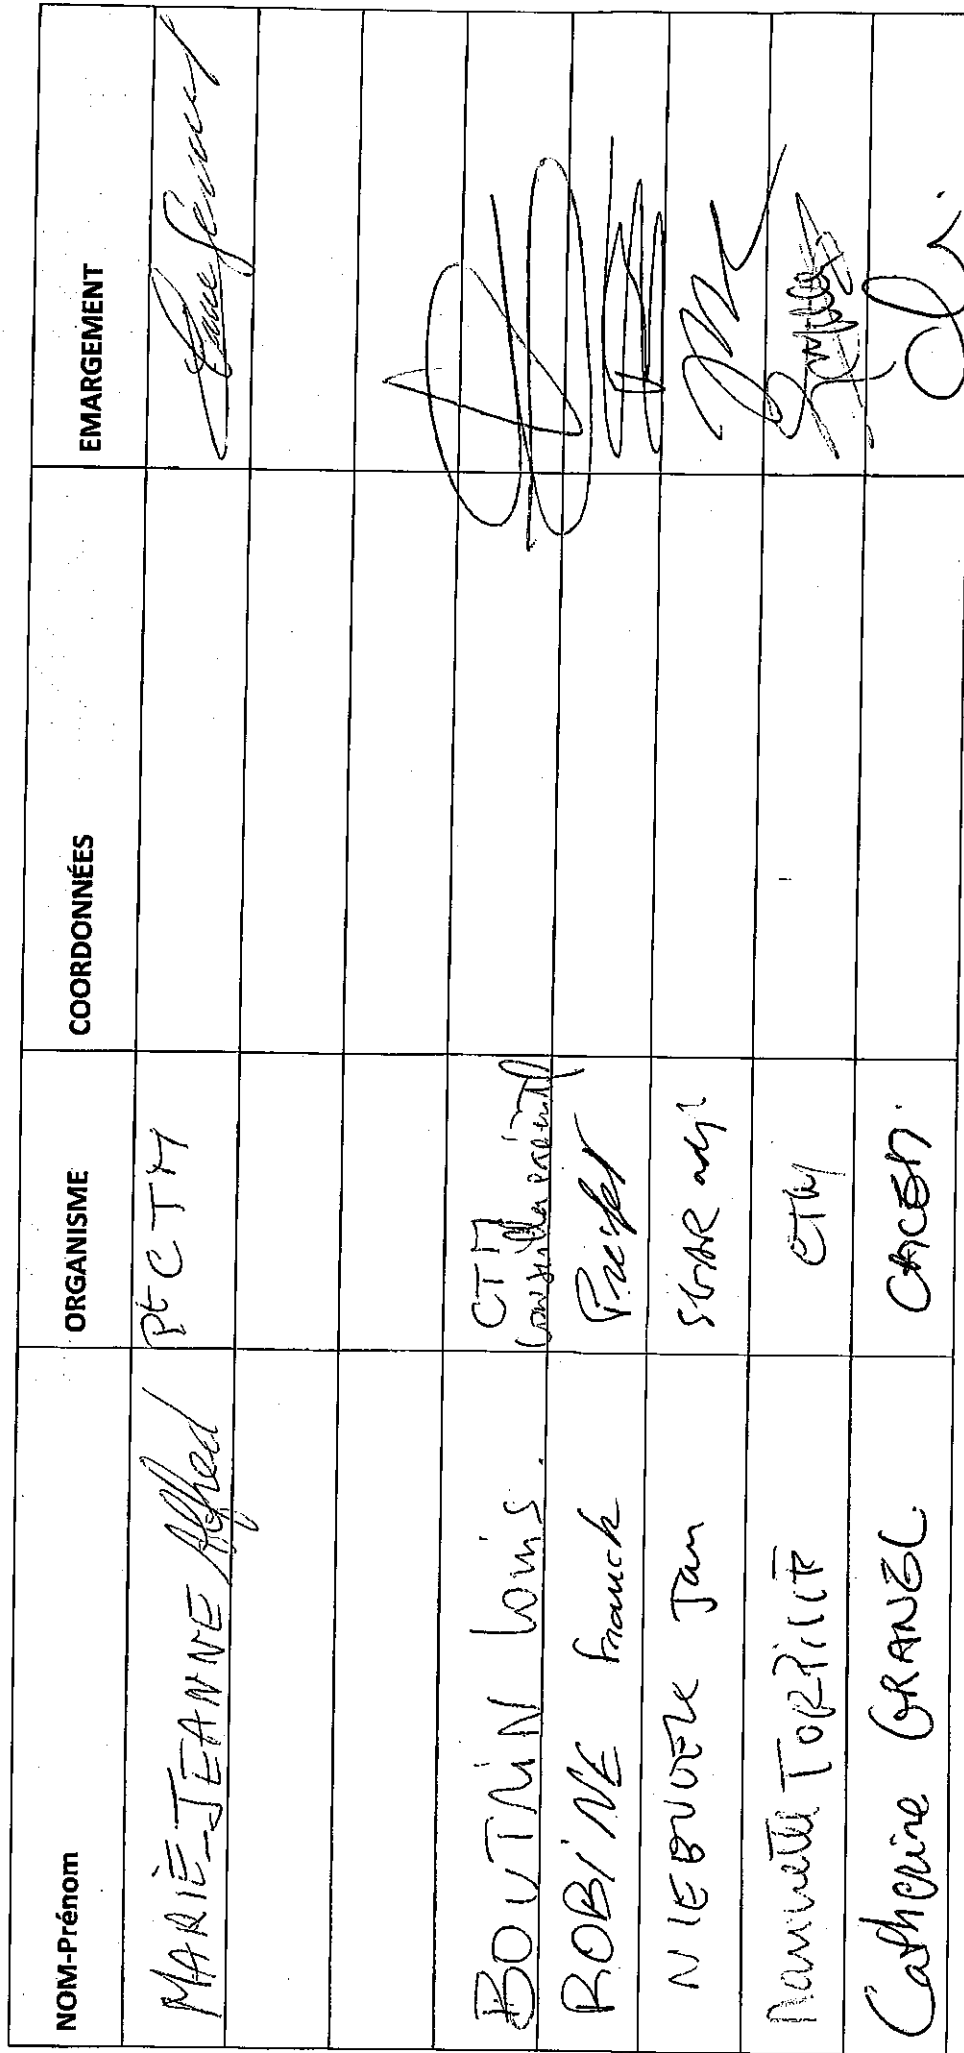 NOM-Prénom ORGANISME COORDONNÉES EMARGEMENT
MARIE-JEANNE Alfred Pt CTM
BOUTRIN Louis. CTM
ROBINE Franck Préfet
NIEBUDEK Jan SGAR adjt
TORPILLE CTM
Catherine GRANZL CACEM.